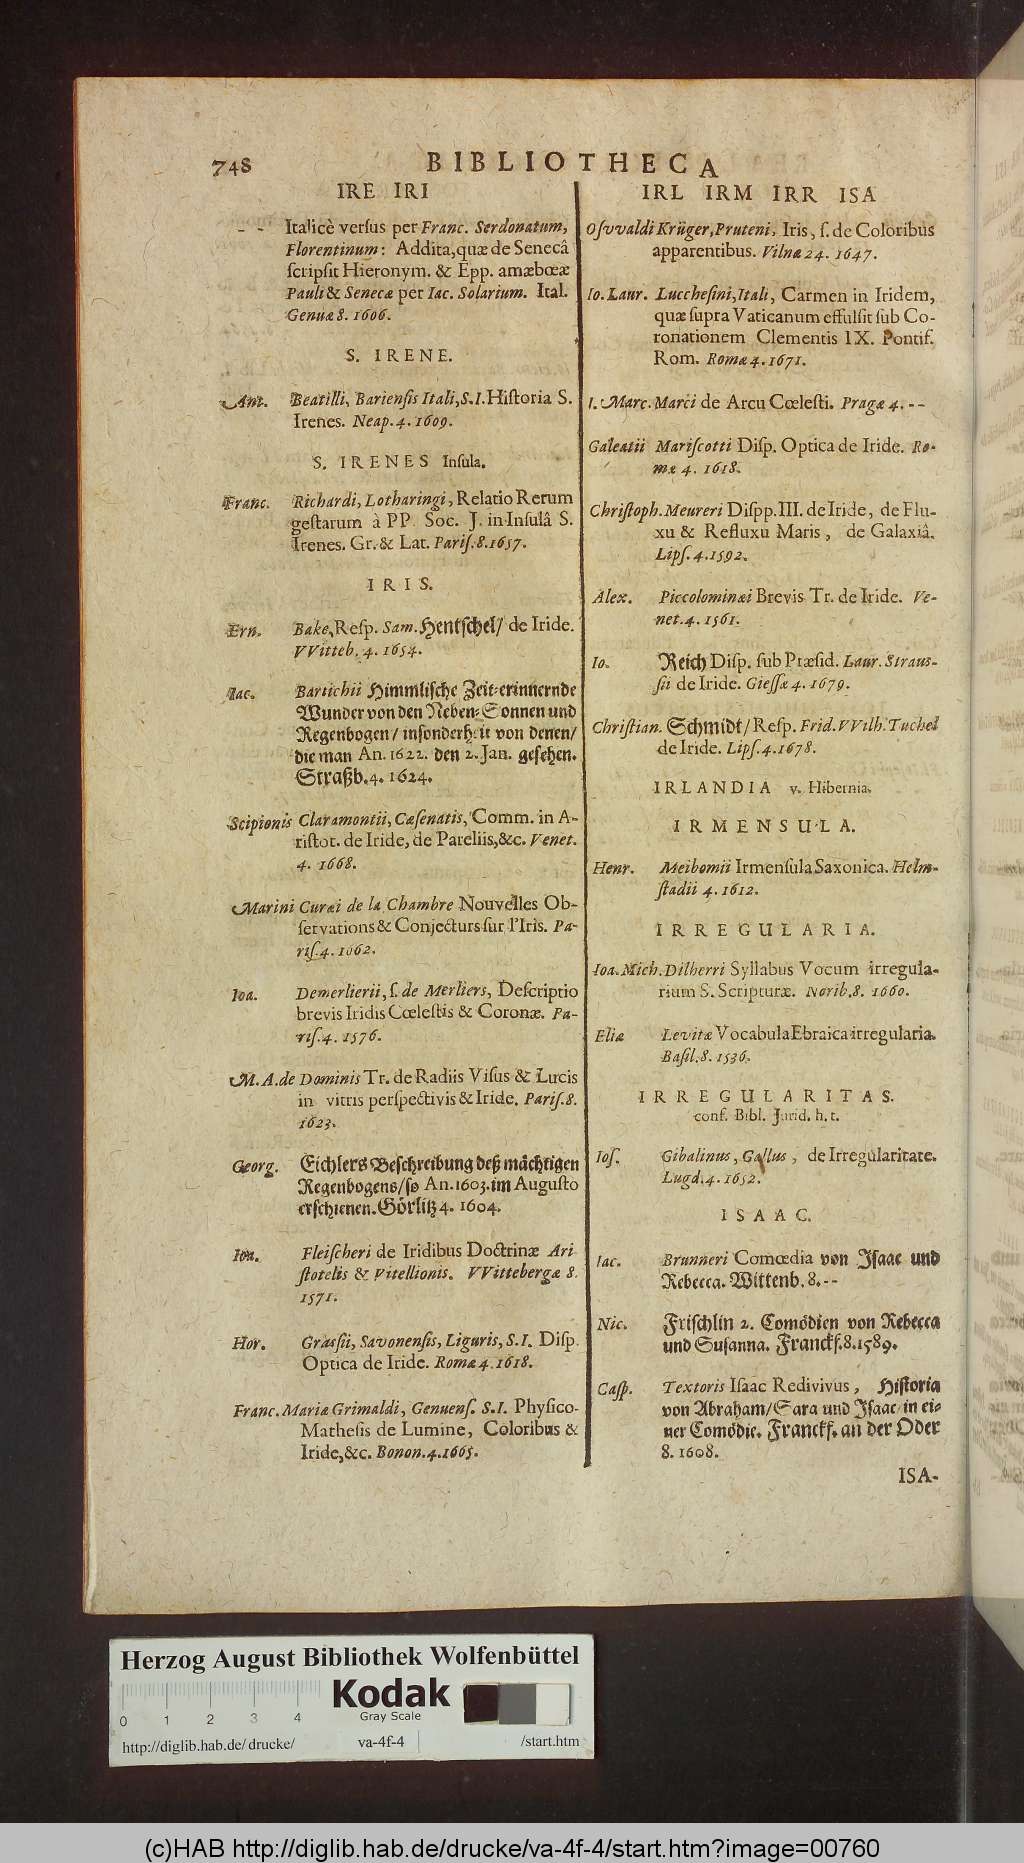 748
BIBLIOTHECA
IRE IRI
- - Italicè versus per Franc. Serdonatum,
Florentinum: Addita, quæ de Senecâ
scripsit Hieronym. & Epp. amæbœæ
Pauli & Senecæ per Iac. Solarium. Ital.
Genuæ 8. 1606.
S. IRENE.
Ant. Beatilli, Bariensis Itali, S. I. Historia S.
Irenes. Neap. 4. 1609.
S. IRENES Insula.
Franc. Richardi, Lotharingi, Relatio Rerum
gestarum à PP. Soc. J. in Insulâ S.
Irenes. Gr. & Lat. Paris. 8. 1657.
IRIS.
Ern. Bake, Resp. Sam. Hentschel/ de Iride.
VVitteb. 4. 1654.
Iac. Bartichii Himmlische Zeit-erinnernde
Wunder von den Neben-Sonnen und
Regenbogen/ insonderheit von denen/
die man An. 1622. den 2. Jan. gesehen.
Straßb. 4. 1624.
Scipionis Claramontii, Cæsenatis, Comm. in A-
ristot. de Iride, de Pareliis, &c. Venet.
4. 1668.
Marini Curæi de la Chambre Nouvelles Ob-
servations & Conjecturs sur l'Iris. Pa-
ris. 4. 1662.
Ioa. Demerlierii, s. de Merliers, Descriptio
brevis Iridis Cœlestis & Coronæ. Pa-
ris. 4. 1576.
M. A. de Dominis Tr. de Radiis Visus & Lucis
in vitris perspectivis & Iride. Paris. 8.
1623.
Georg. Eichlers Beschreibung deß mächtigen
Regenbogens/ so An. 1603. im Augusto
erschienen. Görlitz 4. 1604.
Ioa. Fleischeri de Iridibus Doctrinæ Ari
stotelis & Vitellionis. VVittebergæ 8.
1571.
Hor. Grassii, Savonensis, Liguris, S. I. Disp.
Optica de Iride. Romæ 4. 1618.
Franc. Mariæ Grimaldi, Genuens. S. I. Physico-
Mathesis de Lumine, Coloribus &
Iride, &c. Bonon. 4. 1665.
IRL IRM IRR ISA
Osvvaldi Krüger, Pruteni, Iris, s. de Coloribus
apparentibus. Vilnæ 24. 1647.
Io. Laur. Lucchesini, Itali, Carmen in Iridem,
quæ supra Vaticanum effulsit sub Co-
ronationem Clementis IX. Pontif.
Rom. Romæ 4. 1671.
I. Marc. Marci de Arcu Cœlesti. Pragæ 4. - -
Galeatii Mariscotti Disp. Optica de Iride. Ro-
mæ 4. 1618.
Christoph. Meureri Dispp. III. de Iride, de Flu-
xu & Refluxu Maris, de Galaxiâ.
Lips. 4. 1592.
Alex. Piccolominæi Brevis Tr. de Iride. Ve-
net. 4. 1561.
Io. Reich Disp. sub Præsid. Laur. Straus-
sii de Iride. Giessæ 4. 1679.
Christian. Schmidt/ Resp. Frid. VVilh. Tuchel
de Iride. Lips. 4. 1678.
IRLANDIA v. Hibernia.
IRMENSULA.
Henr. Meibomii Irmensula Saxonica. Helm-
stadii 4. 1612.
IRREGULARIA.
Ioa. Mich. Dilherri Syllabus Vocum irregula-
rium S. Scripturæ. Norib. 8. 1660.
Eliæ Levitæ Vocabula Ebraica irregularia.
Basil. 8. 1536.
IRREGULARITAS.
conf. Bibl. Jurid. h. t.
Ios. Gibalinus, Gallus, de Irregularitate.
Lugd. 4. 1652.
ISAAC.
Iac. Brunneri Comœdia von Isaac und
Rebecca. Wittenb. 8. - -
Nic. Frischlin 2. Comödien von Rebecca
und Susanna. Franckf. 8. 1589.
Casp. Textoris Isaac Redivivus, Historia
von Abraham/ Sara und Isaac in ei-
ner Comödie. Franckf. an der Oder
8. 1608.
ISA-
Herzog August Bibliothek Wolfenbüttel
Kodak
Gray Scale
0 1 2 3 4
http://diglib.hab.de/drucke/ va-4f-4 /start.htm
(c)HAB http://diglib.hab.de/drucke/va-4f-4/start.htm?image=00760